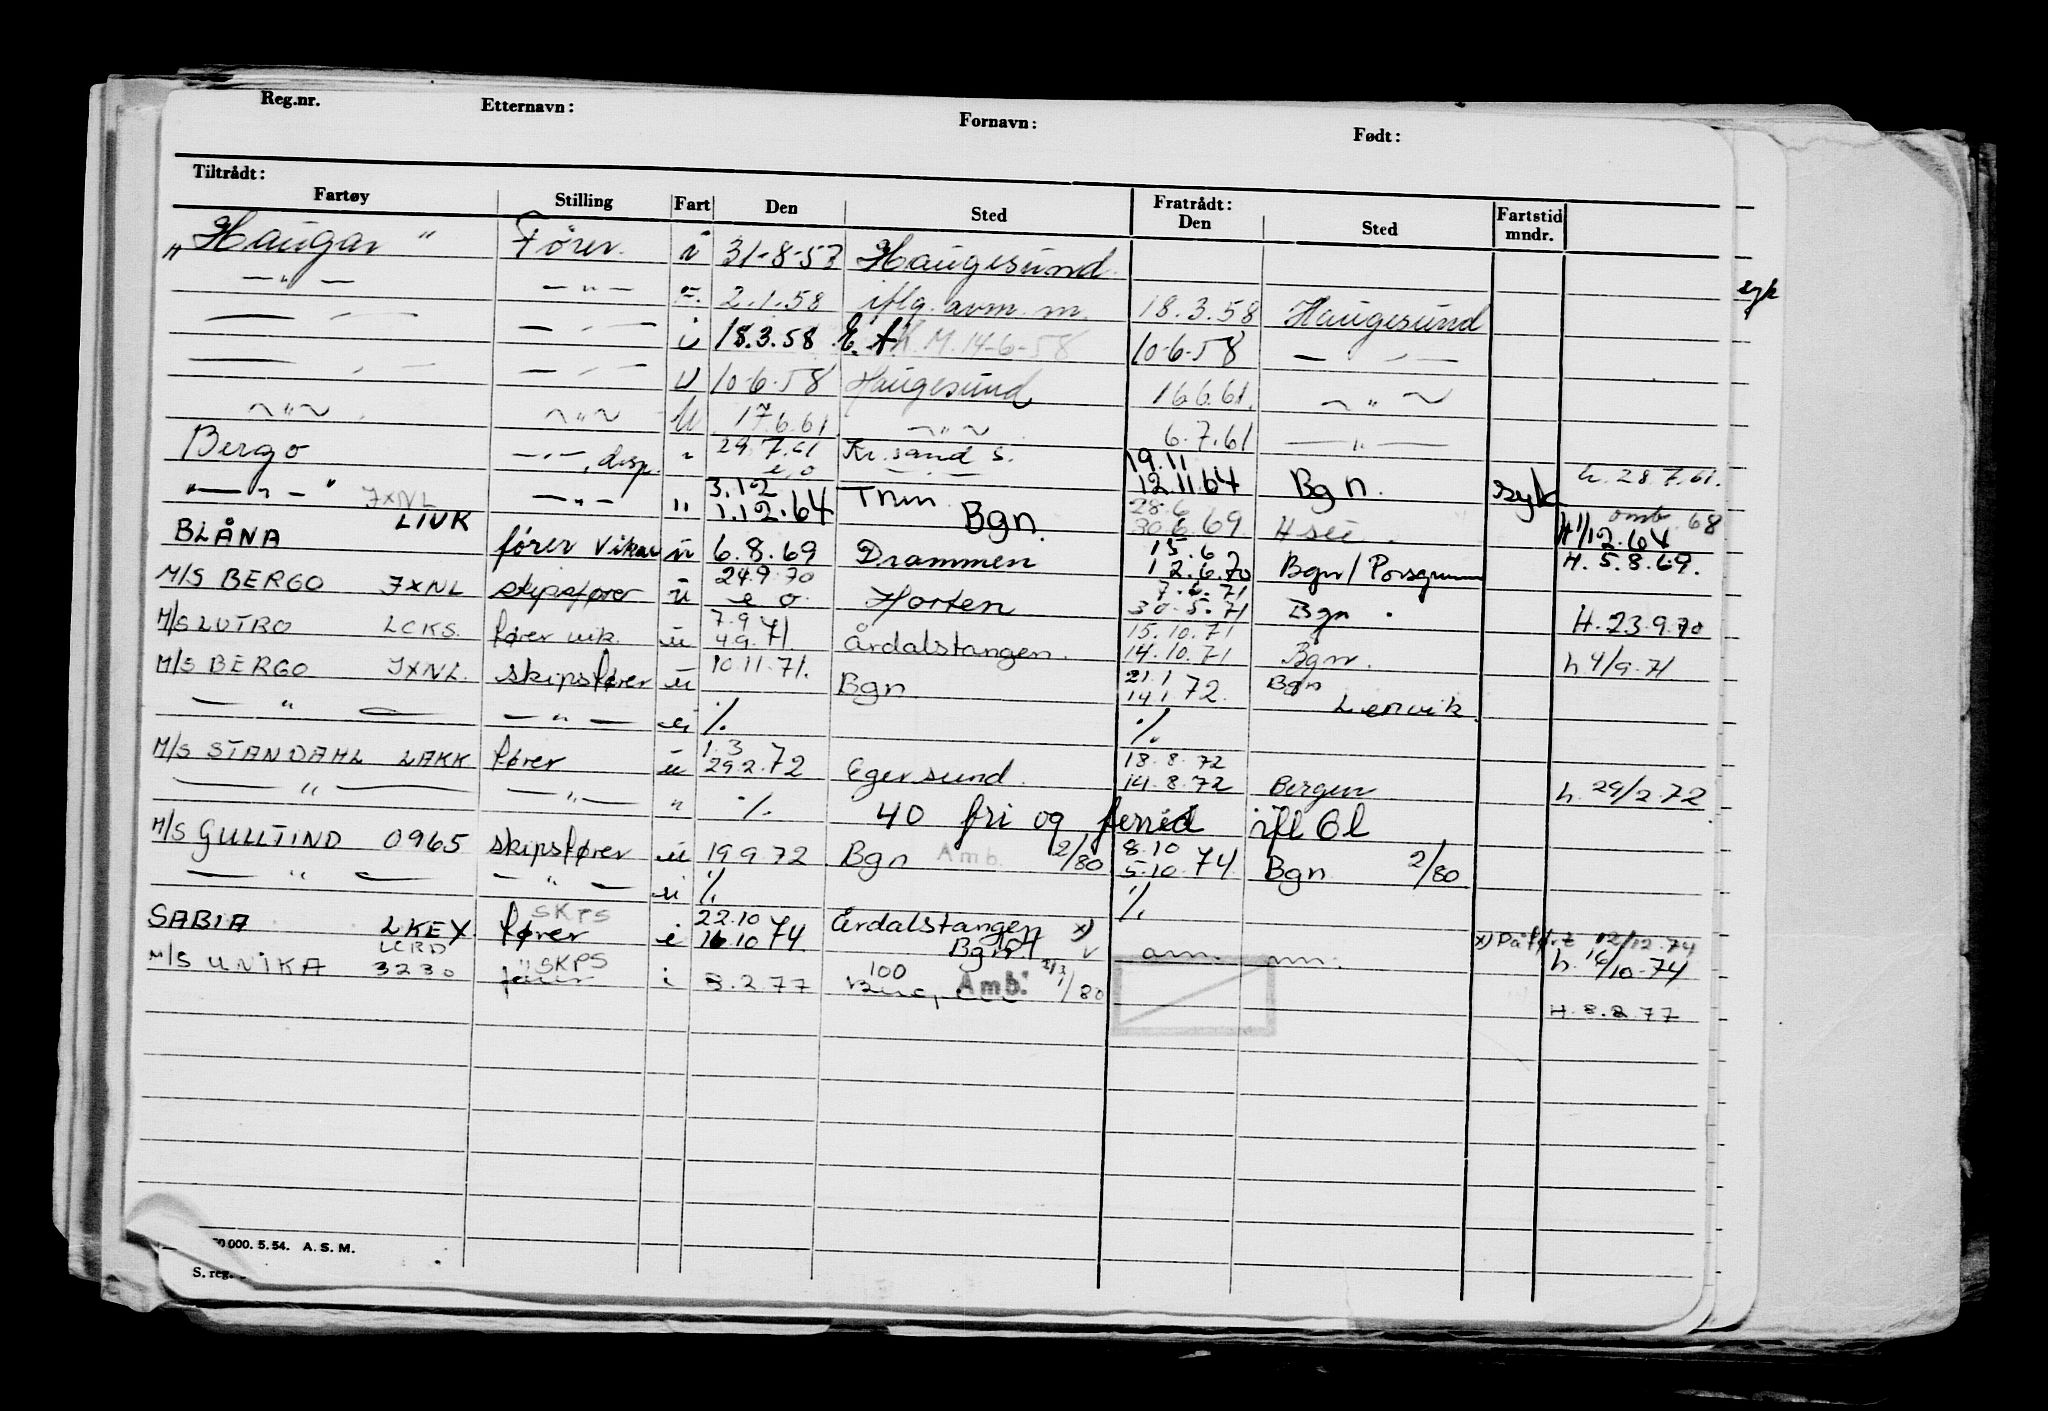 Reg.nr. Etternavn: Fornavn: Født:
Tiltrådt: Fratrådt:
Fartøy Stilling Fart Den Sted Den Sted Fartstid mndr.
"Haugar" Fører. i 31-8-57 Haugesund.
— " — — " — 2.1.58 iflg. avm. m. 18.3.58 Haugesund syk
— " — — " — i 18.3.58 E. A. M. 14-6-58 10-6-58 — " —
— " — — " — U 10-6-58 Haugesund 16.6.61. — " —
— " — — " — U 17.6.61 — " — 6.7.61 — " —
Bergo — " —, disp. " 29.7.61 Kr. sand S. 19.11 12.11.64 Bgn. syk h. 28.7.61.
— " — JXNL — " — " 3.12 1.12.64 Bgn. 28.6 30.6.69 H 1/12.64 omb. 68
BLÅNA LIVK fører vikar ü 6.8.69 Drammen 15.6 12.6.70 Bgn/ Porsgrunn H. 5.8.69.
M/S BERGO JXNL skipsfører ü 24.9.70 e o. Horten 7.6.71 30.5.71 Bgn. H. 23.9.70
M/S LUTRO LCKS. fører vik. ü 7.9 4.9.71. Årdalstangen. 15.10.71 14.10.71 Bgn. h. 4/9.71
M/S BERGO JXNL. skipsfører ü 10.11.71. Bgn 21.1 14.1.72. Bgn Lervik.
— " — — " — ü ./. ./.
M/S STANDAHL LAKK fører ü 1.3 29.2.72 Egersund. 18.8.72 14.8.72 Bergen h. 29/2.72
— " — — " — " ./. 40 fri og ferie ifl
M/S GULLTIND 0965 skipsfører ü 19.9.72 Bgn Amb. 2/80 8.10 5.10.74 Bgn 2/80
— " — — " — ü ./. ./.
SABIA LKEX SKPS fører i 22.10 16.10 74 Årdalstangen x) Bgn x) Påført 12/12.74 h. 16/10-74
M/S UNIKA LCRD 3230 SKPS fører i 8.2.77 100 Amb. /80 H. 8.2.77
000. 5.54. A. S. M.
S. reg.